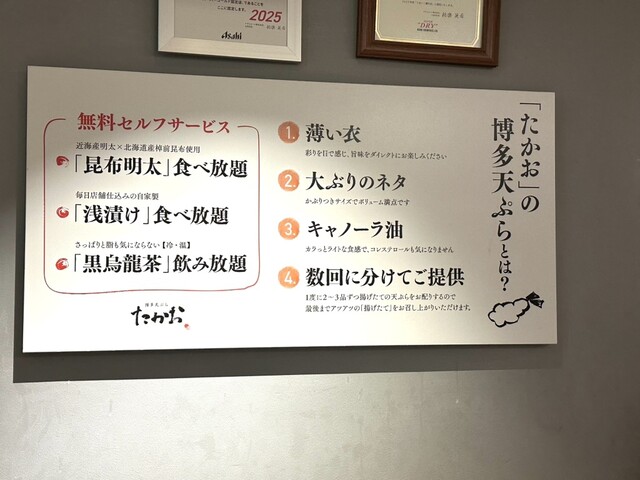 ここに認定します。
2025
Asahi
「たかお」の
博多天ぷらとは?
1. 薄い衣
彩りを目で感じ、旨味をダイレクトにお楽しみください
2. 大ぶりのネタ
かぶりつきサイズでボリューム満点です
3. キャノーラ油
カラっとライトな食感で、コレステロールも気になりません
4. 数回に分けてご提供
1度に2〜3品ずつ揚げたての天ぷらをお配りするので
最後までアツアツの「揚げたて」をお召し上がりいただけます。
無料セルフサービス
近海産明太×北海道産棹前昆布使用
「昆布明太」食べ放題
毎日店舗仕込みの自家製
「浅漬け」食べ放題
さっぱりと脂も気にならない【冷・温】
「黒烏龍茶」飲み放題
博多天ぷら
たかお